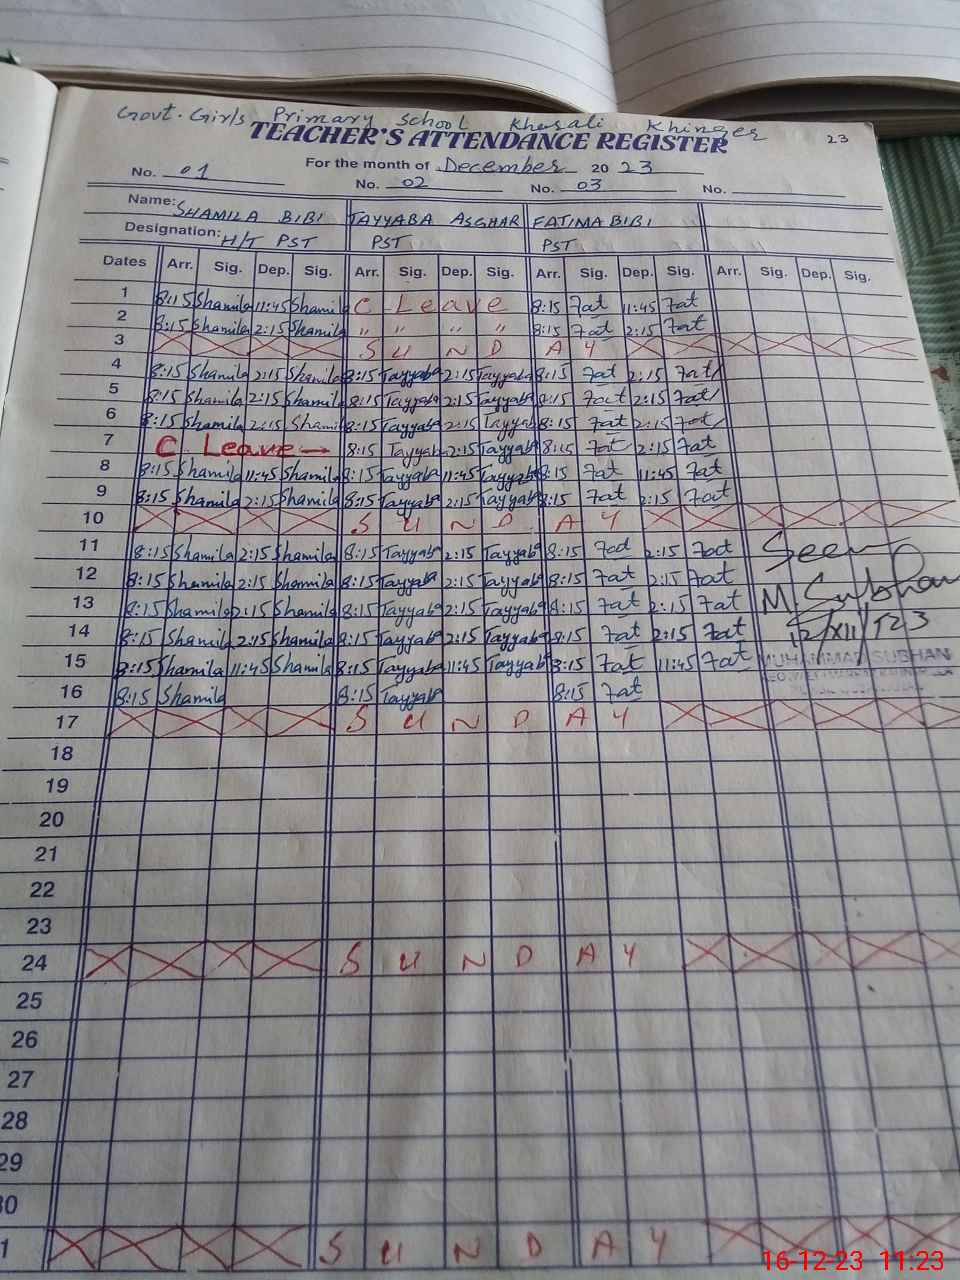 Govt. Girls Primary School Kharali Khinger
TEACHER'S ATTENDANCE REGISTER 23
For the month of December 2023
No. 01 No. 02 No. 03 No.
Name: SHAMILA BIBI TAYYABA ASGHAR FATIMA BIBI
Designation: H/T PST PST PST
Dates Arr. Sig. Dep. Sig. Arr. Sig. Dep. Sig. Arr. Sig. Dep. Sig. Arr. Sig. Dep. Sig.
1 8:15 Shamila 11:45 Shamila C Leave 8:15 Fat 11:45 Fat
2 8:15 Shamila 2:15 Shamila " " " " 8:15 Fat 2:15 Fat
3 SUNDAY
4 8:15 Shamila 2:15 Shamila 8:15 Tayyaba 2:15 Tayyaba 8:15 Fat 2:15 Fat
5 8:15 Shamila 2:15 Shamila 8:15 Tayyaba 2:15 Tayyaba 8:15 Fat 2:15 Fat
6 8:15 Shamila 2:15 Shamila 8:15 Tayyaba 2:15 Tayyaba 8:15 Fat 2:15 Fat
7 C Leave → 8:15 Tayyaba 2:15 Tayyaba 8:15 Fat 2:15 Fat
8 8:15 Shamila 11:45 Shamila 8:15 Tayyaba 11:45 Tayyaba 8:15 Fat 11:45 Fat
9 8:15 Shamila 2:15 Shamila 8:15 Tayyaba 2:15 Tayyaba 8:15 Fat 2:15 Fat
10 SUNDAY
11 8:15 Shamila 2:15 Shamila 8:15 Tayyaba 2:15 Tayyaba 8:15 Fat 2:15 Fat Seen
12 8:15 Shamila 2:15 Shamila 8:15 Tayyaba 2:15 Tayyaba 8:15 Fat 2:15 Fat
13 8:15 Shamila 2:15 Shamila 8:15 Tayyaba 2:15 Tayyaba 8:15 Fat 2:15 Fat M Subhan
14 8:15 Shamila 2:15 Shamila 8:15 Tayyaba 2:15 Tayyaba 8:15 Fat 2:15 Fat 12/XII/23
15 8:15 Shamila 11:45 Shamila 8:15 Tayyaba 11:45 Tayyaba 8:15 Fat 11:45 Fat MUHAMMAD SUBHAN
16 8:15 Shamila 8:15 Tayyaba 8:15 Fat
17 SUNDAY
18
19
20
21
22
23
24 SUNDAY
25
26
27
28
29
30
1 SUNDAY
16-12-23 11:23